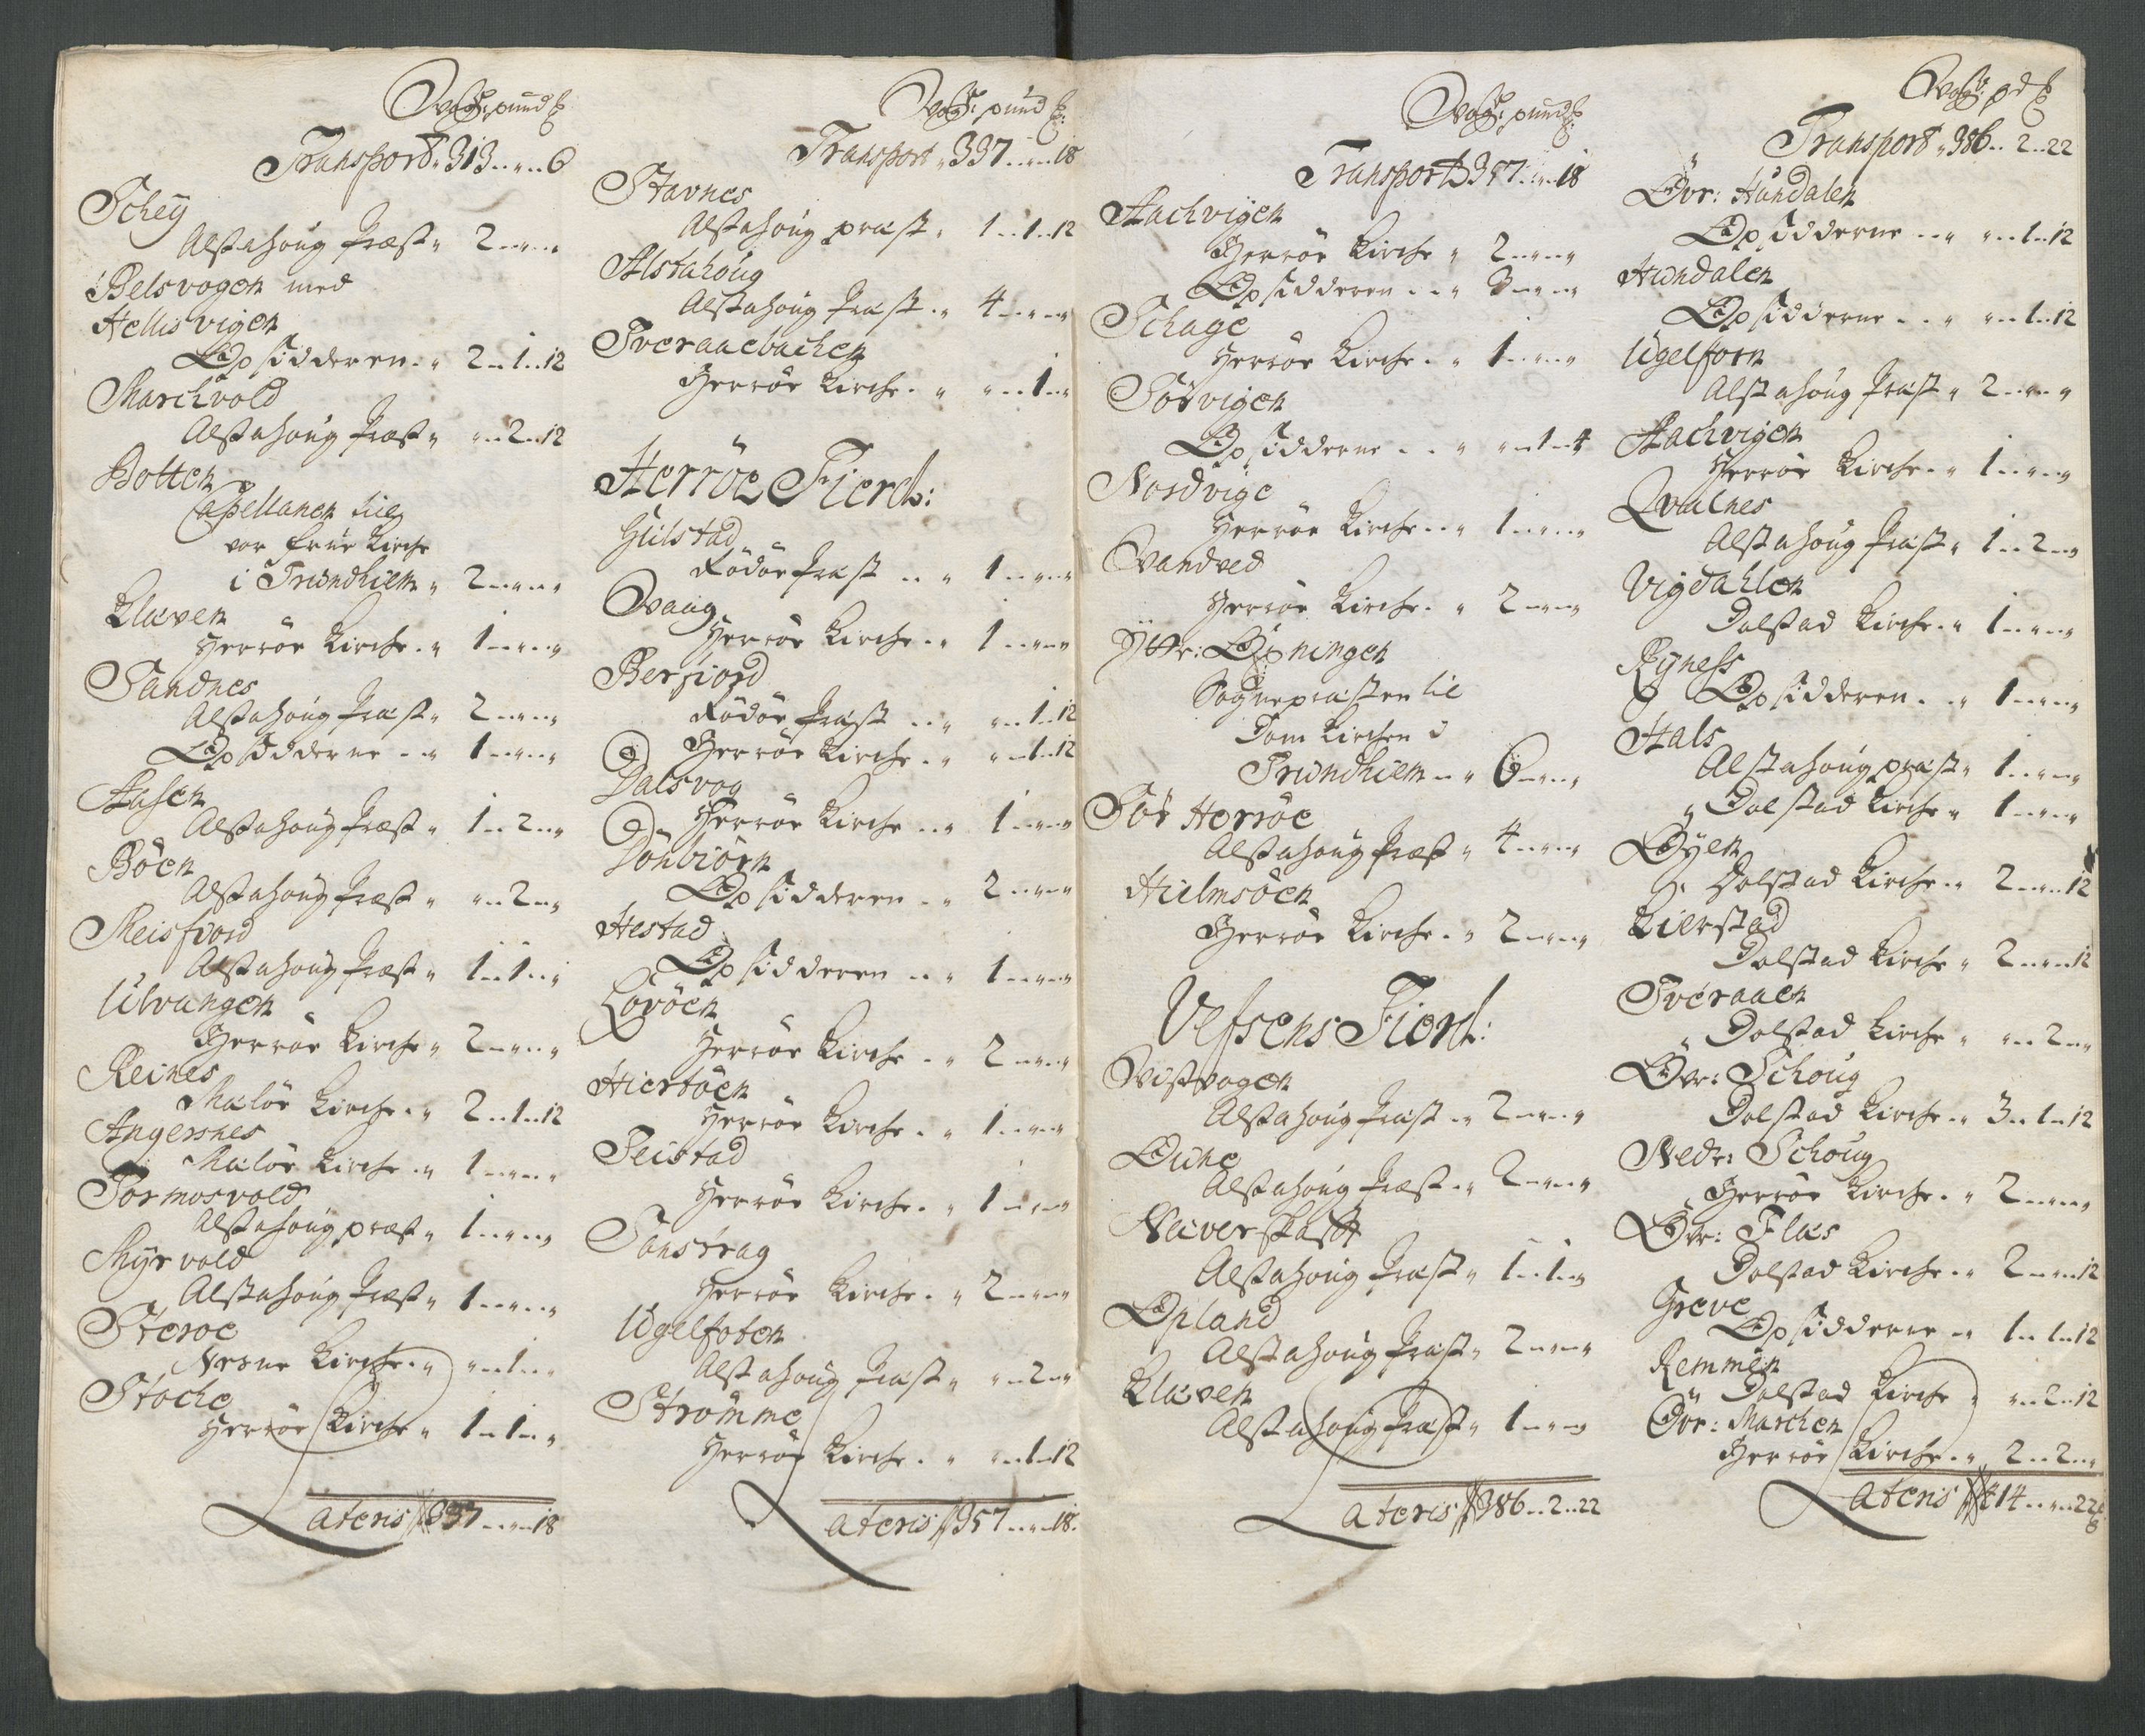 Wog: pund ℔
Transport " 313 .. " .. 6
Schey
Alstahoug Præst " 2 .. " .. "
Belsvogen med
Hellisvigen
Opsidderen . " 2 .. 1 .. 12
Marchvold
Alstahoug Præst " " .. 2 .. 12
Botten
Capellanen til
vor frue Kirche
i Trundhiem " 2 .. " .. "
Klæven
Herröe Kirche . " 1 .. " .. "
Sandnes
Alstahoug Præst " 2 .. " .. "
Opsidderne .. " 1 .. " .. "
Aasen
Alstahoug Præst " 1 .. 2 .. "
Böen
Alstahoug Præst " " .. 2 .. "
Meisfiord
Alstahoug Præst " 1 .. 1 .. "
Ulvangen
Herröe Kirche " 2 .. " .. "
Reines
Mælöe Kirche . " 2 .. 1 .. 12
Angersnes
Mælöe Kirche . " 1 .. " .. "
Tormosvold
Alstahoug præst " 1 .. " .. "
Myrvold
Alstahoug Præst " 1 .. " .. "
Steroe
Nesne Kirche . " " .. 1 .. "
Stoche
Herröe Kirche " 1 .. 1 .. "
Lateris 337 .. " .. 18
Wog: pund ℔:
Transport " 337 .. " .. 18
Stavnes
Alstahoug præst " 1 .. 1 .. 12
Alstahoug
Alstahoug Præst . " 4 .. " .. "
Tveraaebachen
Herröe Kirche . " " .. 1 .. "
Herröe Fierd:
Gulstad
Rödöe Præst .. " 1 .. " .. "
Vaag
Herröe Kirche . " 1 .. " .. "
Berfiord
Rödöe Præst .. " " .. 1 .. 12
Herröe Kirche . " " .. 1 .. 12
Dalsvog
Herröe Kirche .. " 1 .. " .. "
Dönbiörn
Opsidderen .. " 2 .. " .. "
Hestad
Opsidderen .. " 1 .. " .. "
Lovöen
Herröe Kirche . " 2 .. " .. "
Hiertöen
Herröe Kirche . " 1 .. " .. "
Teistad
Herröe Kirche . " 1 .. " .. "
Tanstrag
Herröe Kirche . " 2 .. " .. "
Ugelfoten
Alstahoug Præst " " .. 2 .. "
Strömme
Herröe Kirche . " " .. 1 .. 12
Lateris 357 .. " .. 18
Wog: pund ℔:
Transport 357 .. " .. 18
Aachvigen
Herröe Kirche " 2 .. " .. "
Opsidderen .. " 3 .. " .. "
Schage
Herröe Kirche . " 1 .. " .. "
Sörvigen
Opsidderne .. " " .. 1 .. 4
Nordvige
Herröe Kirche .. " 1 .. " .. "
Vandved
Herröe Kirche . " 2 .. " .. "
Yttr: Öxningen
Sognepræsten til
Dom Kirchen i
Trundhiem .. " 6 .. " .. "
Sör Herröe
Alstahoug Præst " 4 .. " .. "
Hielmsöen
Herröe Kirche . " 2 .. " .. "
Vefsens Fiord:
Vistvogen
Alstahoug Præst .. " 2 .. " .. "
Oune
Alstahoug Præst . " 2 .. " .. "
Næverskaft
Alstahoug Præst " 1 .. 1 .. "
Opland
Alstahoug Præst " 2 .. " .. "
Klæven
Alstahoug Præst " 1 .. " .. "
Lateris 386 .. 2 .. 22
Wog: pd ℔
Transport " 386 .. 2 .. 22
Övr: Hundalen
Opsidderne .. " " .. 1 .. 12
Hundalen
Opsidderne .. " " .. 1 .. 12
Ugelforn
Alstahoug Præst " 2 .. " .. "
Aachvigen
Herröe Kirche . " 1 .. " .. "
Qvalnes
Alstahoug Præst " 1 .. 2 .. "
Vigdahlen
Dolstad Kirche . " 1 .. " .. "
Ryness
Opsidderen . " 1 .. " .. "
Hals
Alstahoug præst " 1 .. " .. "
" Dolstad Kirche " 1 .. " .. "
Öyen
Dolstad Kirche . " 2 .. " .. 12
Kierstad
Dolstad Kirche " 2 .. " .. 12
Tveraaen
" Dolstad Kirche " " .. 2 .. "
Övr: Schoug
Dolstad Kirche . " 3 .. 1 .. 12
Nedr: Schoug
Herröe Kirche . " 2 .. " .. "
Övr: Flaes
Dolstad Kirche . " 2 .. " .. 12
Greve
Opsidderne .. " 1 .. 1 .. 12
Remmen
Dolstad Kirche " " .. 2 .. 12
Övr: Marchen
Herröe Kirche . " 2 .. 2 .. "
Lateris 414 .. " .. 22